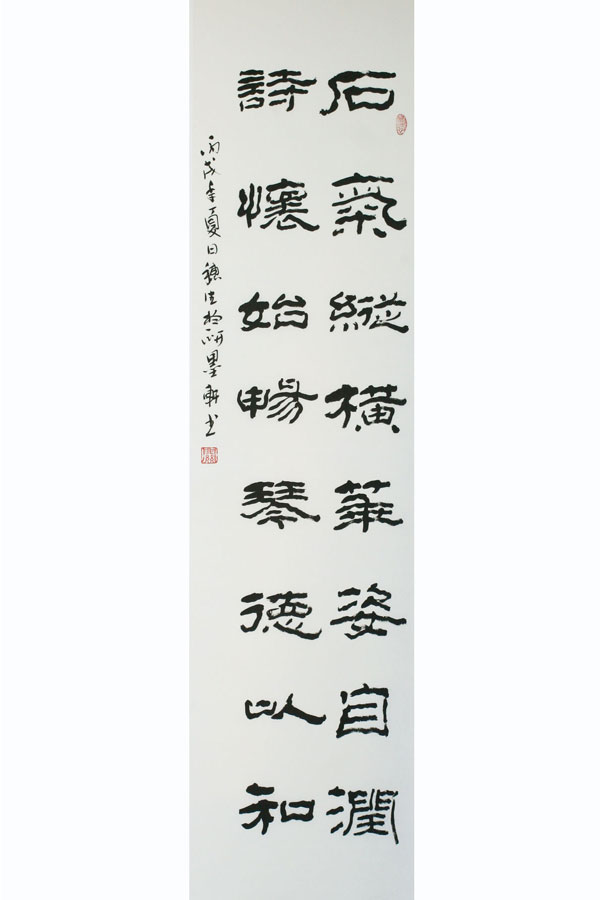 石氣縱橫華姿自潤
詩懷始暢琴德以和
丙戌年夏日穗生於硏墨軒书